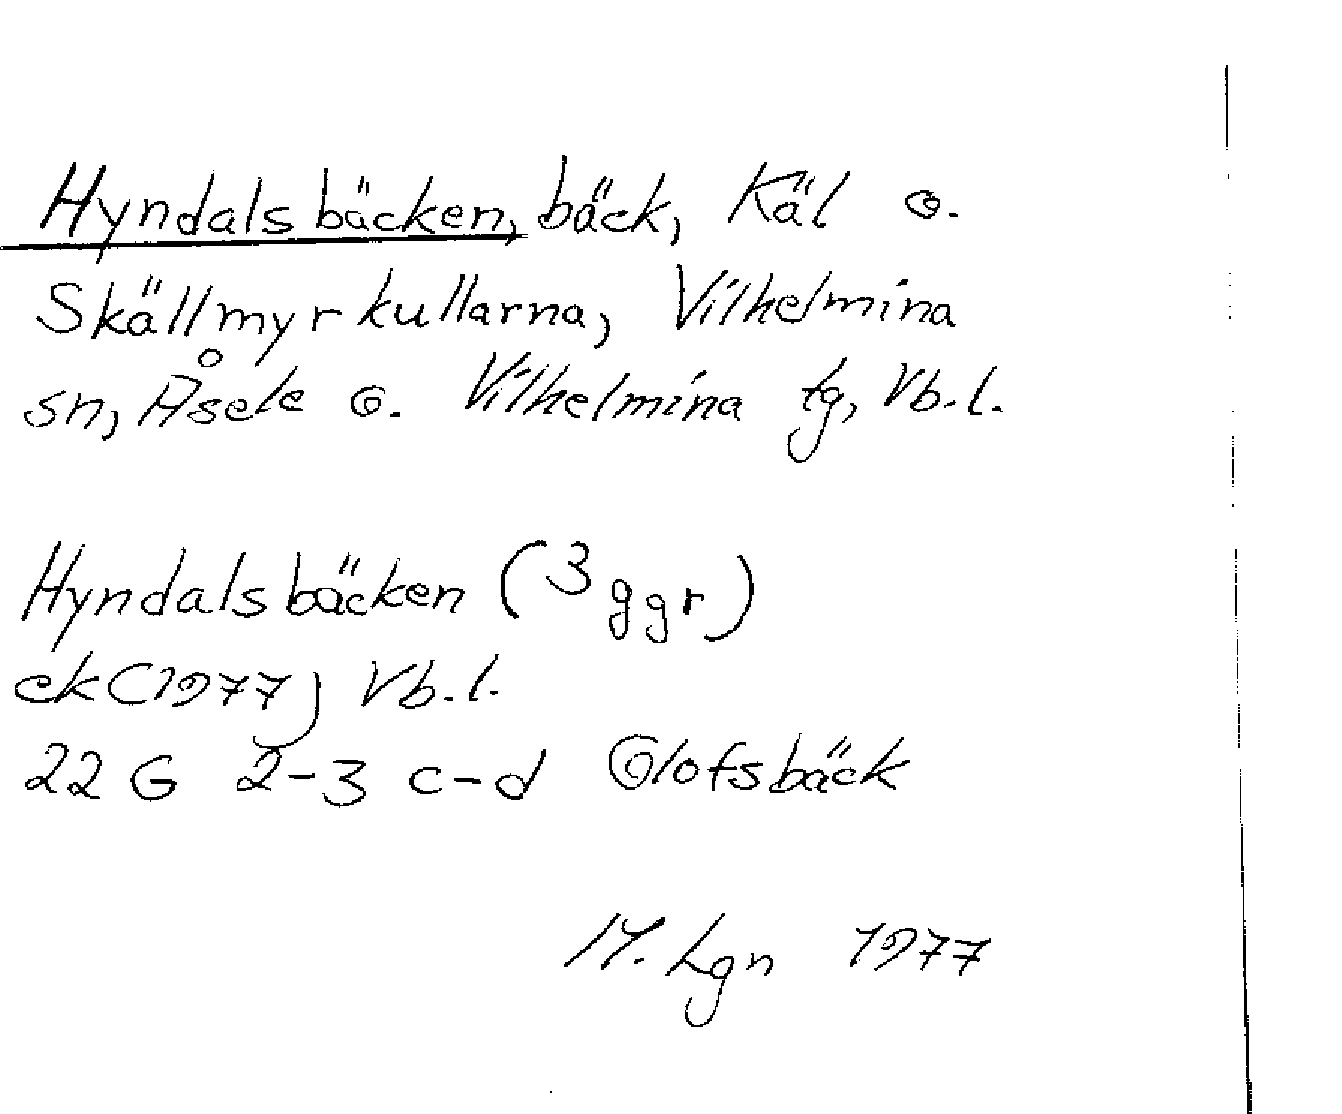 Hyndalsbäcken, bäck, Käl o.
Skällmyrkullarna, Vilhelmina
sn, Åsele o. Vilhelmina tg, Vb.l.
Hyndalsbäcken (3 ggr)
ek (1977) Vb.l.
22 G 2-3 c-d Olofsbäck
Lgn 1977